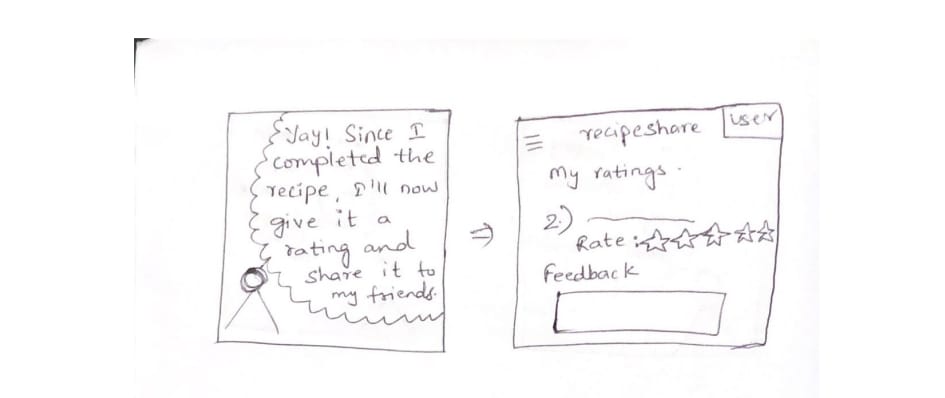 Yay! Since I
completed the
recipe, I'll now
give it a
rating and
share it to
my friends.
recipeshare
user
my ratings.
2.)
Rate :
Feedback